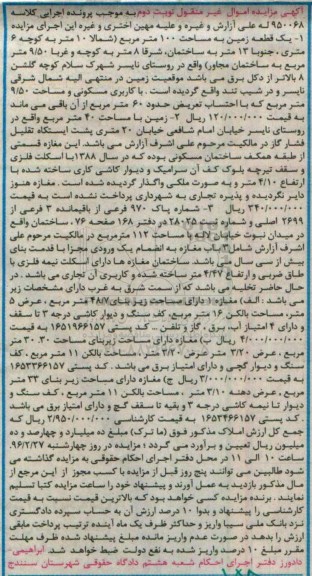 آگهی مزایده اموال غیر منقول نوبت دوم به موجب پرونده اجرایی کلاسه
۹۵۰۰۶۸ له علی آرازش و غیره و علیه مهین اختری و غیره این اجرای مزایده
۱- یک قطعه زمین به مساحت ۱۰۰ متر مربع (شمالا ۱۰ متر به کوچه ۶
متری. جنوبا ۱۳ متر به ساختمان، شرقا ۸ متر به کوچه و غربا ۹/۵۰ متر
به ساختمان مجاور) واقع در روستای نایسر شهرک سلام کوچه گلشن
۸ بالاتر از دکل برق می باشد موقعیت زمین در منتهی الیه شمال شرقی
نایسر و در شیب تند واقع گردیده است. با کاربری مسکونی و مساحت ۹/۵۰
متر مربع که با احتساب تعریض حدود ۶۰ متر مربع از آن باقی می ماند
به قیمت ۱۲۰/۰۰۰/۰۰۰ ریال ۲- زمین با مساحت ۴۰ متر مربع واقع در
روستای نایسر خیابان امام شافعی خیابان ۲۰ متری پشت ایستگاه تقلیل
فشار گاز در مالکیت مرحوم علی اشرف آرازش می باشد. این مغازه قسمتی
از طبقه همکف ساختمان مسکونی بوده که در سال ۱۳۸۸ با اسکلت فلزی
و سقف تیرچه بلوک کف آن سرامیک و دیوار کاشی کاری ساخته شده با
ارتفاع ۴/۱۰ متر و به صورت ملکی واگذار گردیده شده است. مغازه هنوز
دایر نگردیده و پذیره تجاری به شهرداری پرداخت نشده است به قیمت
۳۴۰/۰۰۰/۰۰۰ ریال ۳- شماره پلاک ۹۷۰ فرعی از باقیمانده ۳ فرعی از
۲۶۹۹ اصلی و شماره ثبت ۲۸۰۲۵ در دفتر ۱۶۸ صفحه ۷۶، ساختمان واقع
در میدان نبوت خیابان با مساحت ۱۱۲ مترمربع در مالکیت مرحوم علی
اشرف آرازش شامل ۳ باب مغازه به انضمام یک ورودی مجزا با قدمت بنای
بیش از سی سال می باشد. ساختمان مغازه ها دارای اسکلت نیمه فلزی با
طاق ضربی و ارتفاع ۴/۴۷ متر ساخته شده و کاربری آن تجاری می باشد. در
حال حاضر تخلیه می باشد که از سمت شرق به غرب دارای مشخصات زیر
می باشد: الف) مغازه ۱ دارای مساحت زیر بنای ۴۸/۷ متر مربع، عرض ۵
متر، مساحت بالکن ۱۶ متر مربع، کف سنگ و دیوار کاشی درجه ۳ تا سقف
و دارای ۴ امتیاز آب، برق، گاز و تلفن ... کد پستی ۱۶۵۱۹۶۶۱۵۷ به قیمت
۴/۰۰۰/۰۰۰/۰۰۰ ریال ب) مغازه دارای مساحت زیربنای مساحت ۳۰.۳۰ متر
مربع، عرض ۳/۲۰ متر. عرض ۳/۲۰ متر، مساحت بالکن ۱۱ متر مربع، کف
سنگ و دیوار گچی و دارای امتیاز برق می باشد. کد پستی ۱۶۵۳۳۶۶۱۵۷
به قیمت ۳/۰۰۰/۰۰۰/۰۰۰ ریال ج) مغازه دارای مساحت زیر بنای ۳۳ متر
مربع، عرض دهنه ۳/۱۰ متر، مساحت بالکن ۱۱ متر مربع، کف سنگ و
دیوار تا نیمه کاشی درجه ۳ و بقیه تا سقف گچ و دارای امتیاز برق می باشد
. کد پستی ۱۶۵۳۴۶۶۱۵۷ به قیمت کارشناسی ۲/۹۵۰/۰۰۰/۰۰۰ ریال که
جمع کل ارزش املاک مذکور فوق (ما ترک) مبلغ ده میلیارد و چهارصد و ده
میلیون ریال تعیین و برآورد می گردد؛ مزایده در روز چهارشنبه ۹۶/۲/۲۷.
ساعت ۱۰ الی ۱۱ در محل دفتر اجرای احکام حقوقی به مزایده گذاشته می
شود طالبین می توانند پنج روز قبل از مزایده با کسب مجوز از این مرجع از
مال مذکور بازدید به عمل آورند و پیشنهاد خود را ساعت مزایده کتبا تسلیم
نمایند. برنده مزایده کسی خواهد بود که بالاترین قیمت نسبت به قیمت
کارشناسی را پیشنهاد و بدوا ۱۰ درصد ارزش آن به حساب سپرده دادگستری
نزد بانک ملی سیبا واریز و حداکثر ظرف یک ماه آینده ترتیب پرداخت مابقی
ارزش را بدهد در صورت عدم واریز مانده مبلغ پیشنهاد شده ظرف مهلت
مقرر مبلغ ۱۰ درصد واریز شده به نفع دولت ضبط خواهد شد. ابراهیمی-
دادورز دفتر اجرای احکام شعبه هشتم دادگاه حقوقی شهرستان سنندج